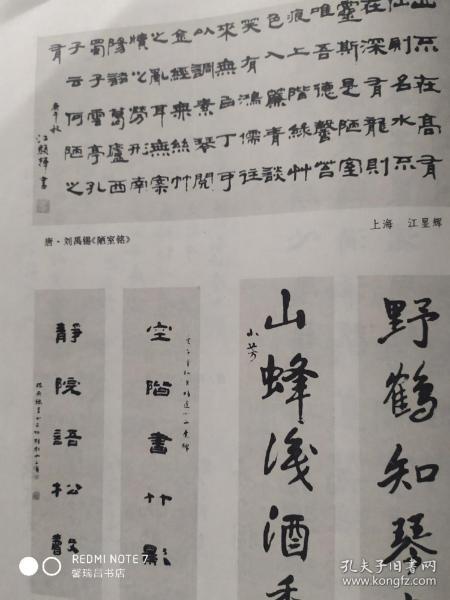 山不在高有
仙則名水不
在深有龍則
靈斯是陋室
唯吾德馨苔
痕上階綠艸
色入簾青談
笑有鴻儒往
來無白丁可
以調素琴閱
金經無絲竹
之亂耳無案
牘之勞形南
陽諸葛廬西
蜀子雲亭孔
子云何陋之
有
庚午秋
江顯輝書
上海 江显辉
唐·刘禹锡《陋室铭》
野鶴知琴
山蜂識酒香
小芳
空階書竹影
靜院語松聲
REDMI NOTE 7
馨瑞昌书店
孔夫子旧书网